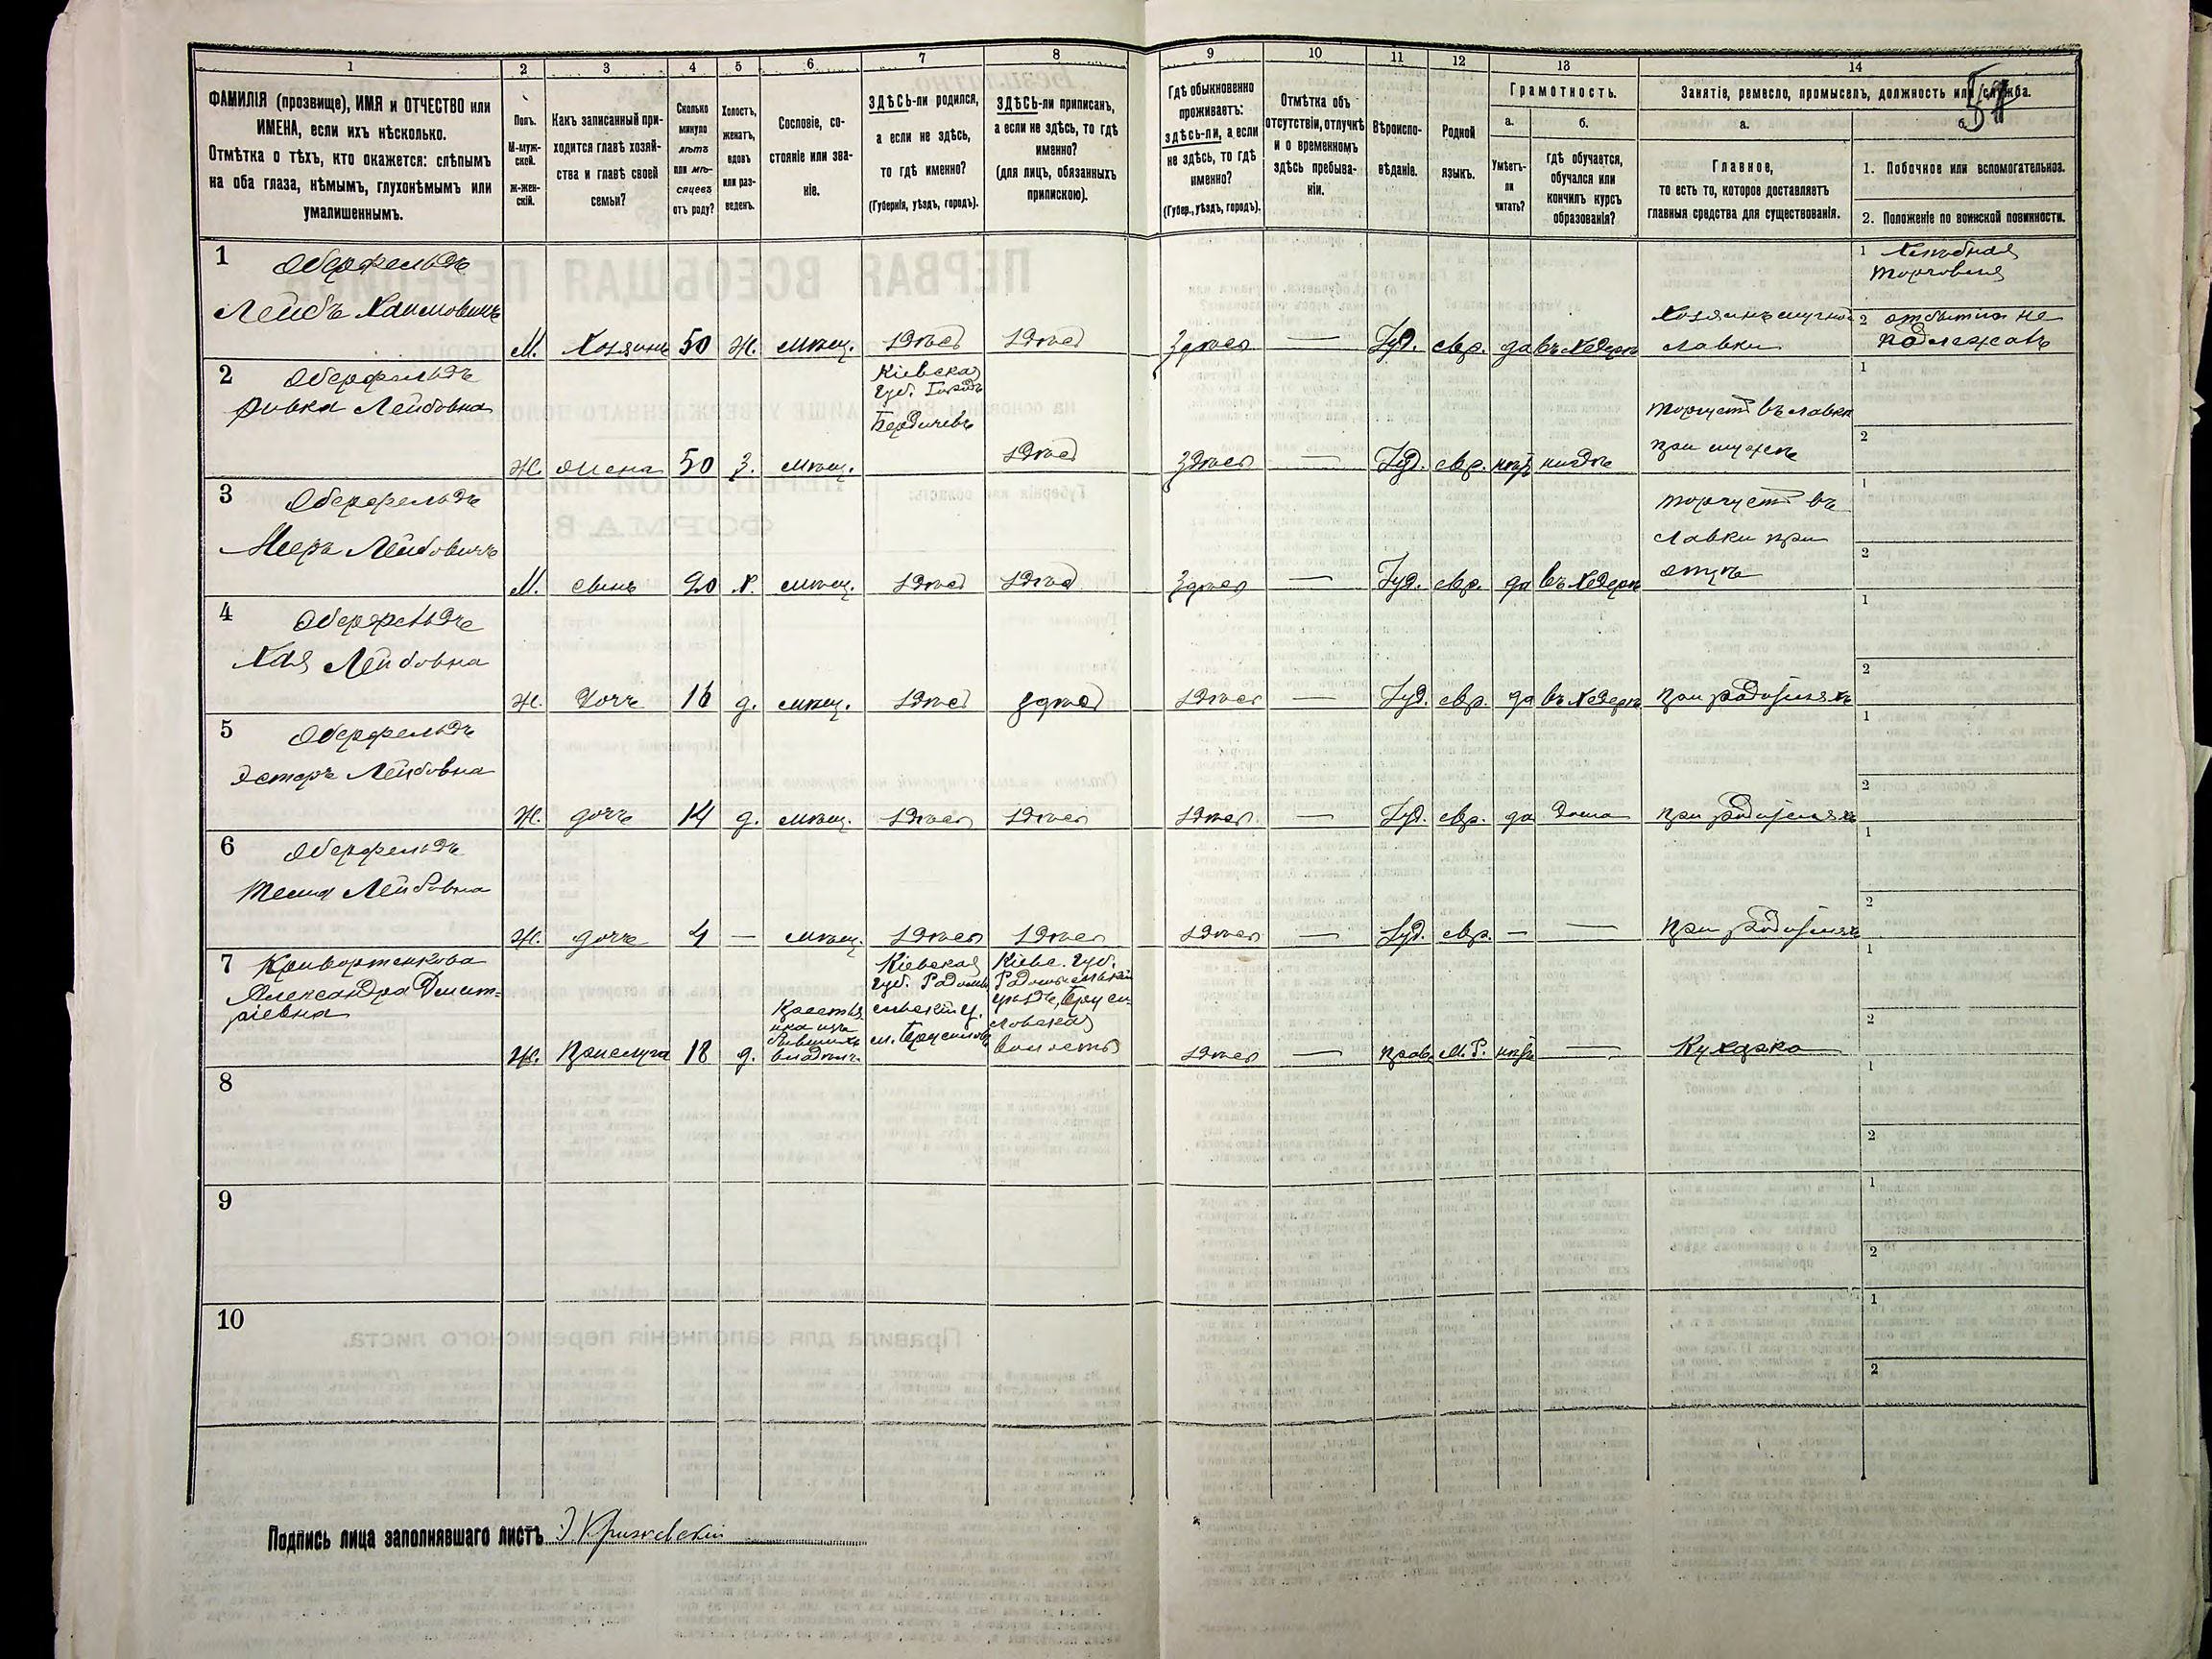 1 2 3 4 5 6 7 8 9 10 11 12 13 14
ФАМИЛІЯ (прозвище), ИМЯ и ОТЧЕСТВО или
ИМЕНА, если ихъ нѣсколько.
Отмѣтка о тѣхъ, кто окажется: слѣпымъ
на оба глаза, нѣмымъ, глухонѣмымъ или
умалишеннымъ.
Полъ.
М-муж-
ской.
ж-жен-
скій.
Какъ записанный при-
ходится главѣ хозяй-
ства и главѣ своей
семьи?
Сколько
минуло
лѣтъ
или мѣ-
сяцевъ
отъ роду?
Холостъ,
женатъ,
вдовъ
или раз-
веденъ.
Сословіе, со-
стояніе или зва-
ніе.
ЗДѢСЬ-ли родился,
а если не здѣсь,
то гдѣ именно?
(Губернія, уѣздъ, городъ).
ЗДѢСЬ-ли приписанъ,
а если не здѣсь, то гдѣ
именно?
(для лицъ, обязанныхъ
припискою).
Гдѣ обыкновенно
проживаетъ:
здѣсь-ли, а если
не здѣсь, то гдѣ
именно?
(Губер., уѣздъ, городъ).
Отмѣтка объ
отсутствіи, отлучкѣ
и о временномъ
здѣсь пребыва-
ніи.
Вѣроиспо-
вѣданіе.
Родной
языкъ.
Грамотность.
а.
Умѣетъ-
ли
читать?
б.
гдѣ обучается,
обучался или
кончилъ курсъ
образованія?
Занятіе, ремесло, промыселъ, должность или служба.
а.
Главное,
то есть то, которое доставляетъ
главныя средства для существованія.
б.
1. Побочное или вспомогательное.
2. Положеніе по воинской повинности.
1 Оберфельдъ
Лейбъ Хаимовичъ
М. Хозяинъ 50 Ж. мѣщ. здѣсь здѣсь здѣсь — Іуд. евр. да въ Хедерѣ
Хозяинъ мучной
лавки
1 Хлѣбная
торговля
2 отбытію не
подлежатъ
2 Оберфельдъ
Ривка Лейбовна
Ж. жена 50 З. мѣщ.
Кіевская
губ. Городъ
Бердичевъ
здѣсь здѣсь — Іуд. евр. нѣтъ нигдѣ
торгуетъ въ лавкѣ
при мужѣ
1
2
3 Оберфельдъ
Мееръ Лейбовичъ
М. сынъ 20 Х. мѣщ. здѣсь здѣсь здѣсь — Іуд. евр. да въ Хедерѣ
торгуетъ въ
лавки при
отцѣ
1
2
4 Оберфельдъ
Хая Лейбовна
Ж. дочь 16 д. мѣщ. здѣсь здѣсь здѣсь — Іуд. евр. да въ Хедерѣ при родителяхъ
1
2
5 Оберфельдъ
Эстеръ Лейбовна
Ж. дочь 14 д. мѣщ. здѣсь здѣсь здѣсь — Іуд. евр. да дома при родителяхъ
1
2
6 Оберфельдъ
Лейбовна
Ж. дочь 4 — мѣщ. здѣсь здѣсь здѣсь — Іуд. евр. — — при родителяхъ
1
2
7
Александра Дмит=
ріевна
Ж. Прислуга 18 д.
Крестья
нка изъ
бывшихъ
владѣлъч.
Кіевская
губ. Радомы
сльскій у.
м. Брусиловъ
Кіевс. губ.
Радомысльскій
уѣздъ, Бруси
ловская
волость
здѣсь — прав. М.Р. нѣтъ — Кухарка
1
2
8
1
2
9
1
2
10
1
2
Подпись лица заполнявшаго листъ